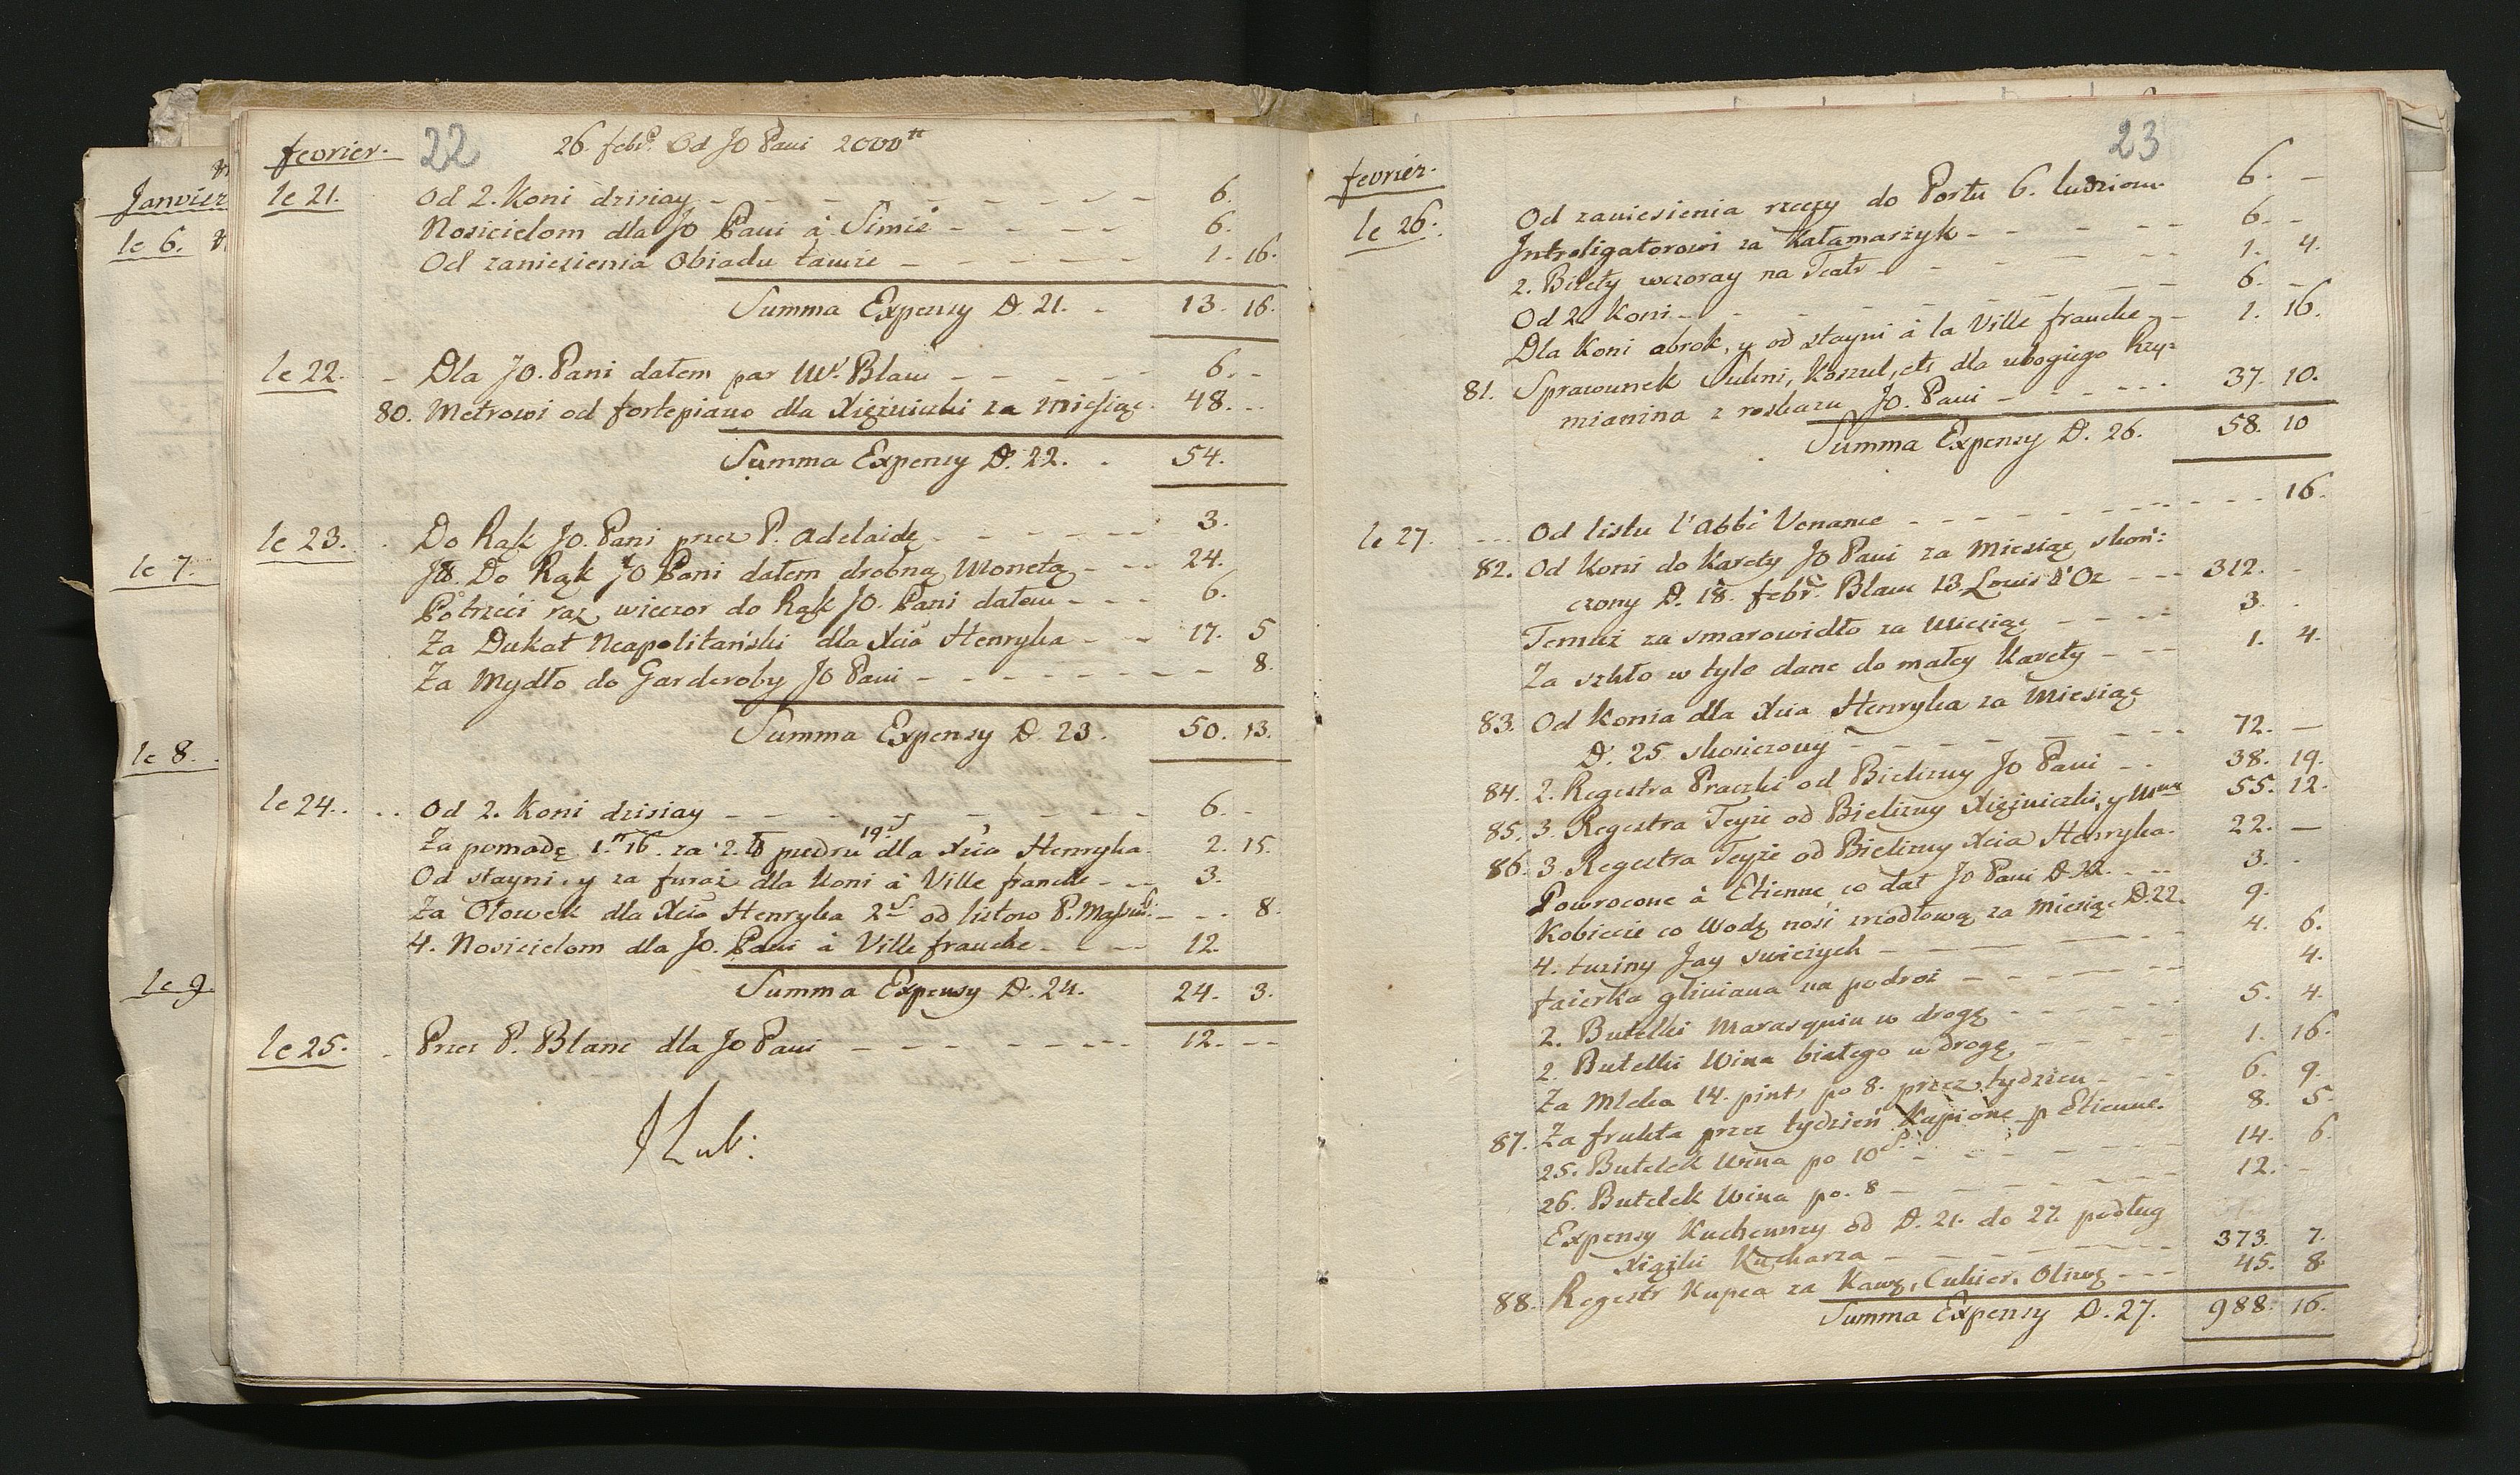 Janvier
le 6.
le 7.
le 8.
le 9.
fevrier. 22 26. febr. Od JO Pani 2000
le 21. Od 2. Koni dzisiay 6.
Nosicielom dla JO Pani à Simié 6.
Od zaniesienia Obiadu tamże 1. 16.
Summa Expensy D. 21. 13. 16.
le 22. Dla JO. Pani dałem par Mr. Blanc 6.
80. Metrowi od fortepiano dla Xiężniczki za Miesiąc 48.
Summa Expensy D. 22. 54.
le 23. Do Rąk JO. Pani przez P. Adelaidę 3.
Do Rąk JO Pani dałem drobną Monetą 24.
Potrzeci raz wieczor do Rąk JO. Pani dałem 6.
Za Dukat Neapolitański dla Xcia Henryka 17. 5
Za Mydło do Garderoby JO Pani 8.
Summa Expensy D. 23. 50. 13.
le 24. Od 2. Koni dzisiay 6.
Za pomadę 1. 16. za 2. ℔ pudru 19 s dla Xcia Henryka 2. 15.
Od stayni y za furaż dla Koni à Ville franche 3.
Za Ołowek dla Xcia Henryka 2 s. od listow P. 8.
4. Nosicielom dla JO. Pani à Ville franche 12.
Summa Expensy D. 24. 24. 3.
le 25. Przez P. Blanc dla JO Pani 12.
J Lub:
23
fevrier.
le 26. Od zaniesienia rzeczy do Portu 6. ludziom 6.
Introligatorowi za Kałamarżyk 6.
2. Bilety wczoray na Teatr 1. 4.
Od 2. Koni 6.
Dla Koni obrok, y od stayni à la Ville franche 1. 16.
81. Sprawunek Sukni, Koszul, etc dla ubogiego Rzy-
mianina z roskazu JO. Pani 37. 10.
Summa Expensy D. 26. 58. 10
le 27. Od listu l'Abbé Venance 16.
82. Od Koni do Karety JO Pani za Miesiąc skoń:
czony D. 18. febr. Blanc 13 Louis d'Or 312.
Temuż za smarowidło za Miesiąc 3.
Za szkło w tyle dane do małey Karety 1. 4.
83. Od Konia dla Xcia Henryka za Miesiąc
D. 25 skończony 72.
84. 2. Regestra Praczki od Bielizny JO Pani 38. 19.
85. 3. Regestra Teyże od Bielizny Xiężniczki, y Mme 55. 12.
86. 3. Regestra Teyże od Bielizny Xcia Henryka 22.
Powrocone à Etienne, co dał JO Pani D. 22. 3.
Kobiecie co Wodę nosi zrodłową za Miesiąc D. 22. 9.
4. tuziny Jay swieżych 4. 6.
faierka gliniana na podroż 4.
2. Butelki Marasquin w drogę 5. 4.
2. Butelki Wina białego w drogę 1. 16.
Za Mleka 14. pint, po 8. przez tydzien 6. 9.
87. Za frukta przez tydzień Kupione p Etienne. 8. 5.
25. Butelek Wina po 10 s. 14. 6.
26. Butelek Wina po. 8 12.
Expensy Kuchenney od D. 21. do 27. podług
Xiążki Kucharza 373. 7.
88. Regestr Kupca za Kawę, Cukier, Oliwę 45. 8
Summa Expensy D. 27. 988. 16.